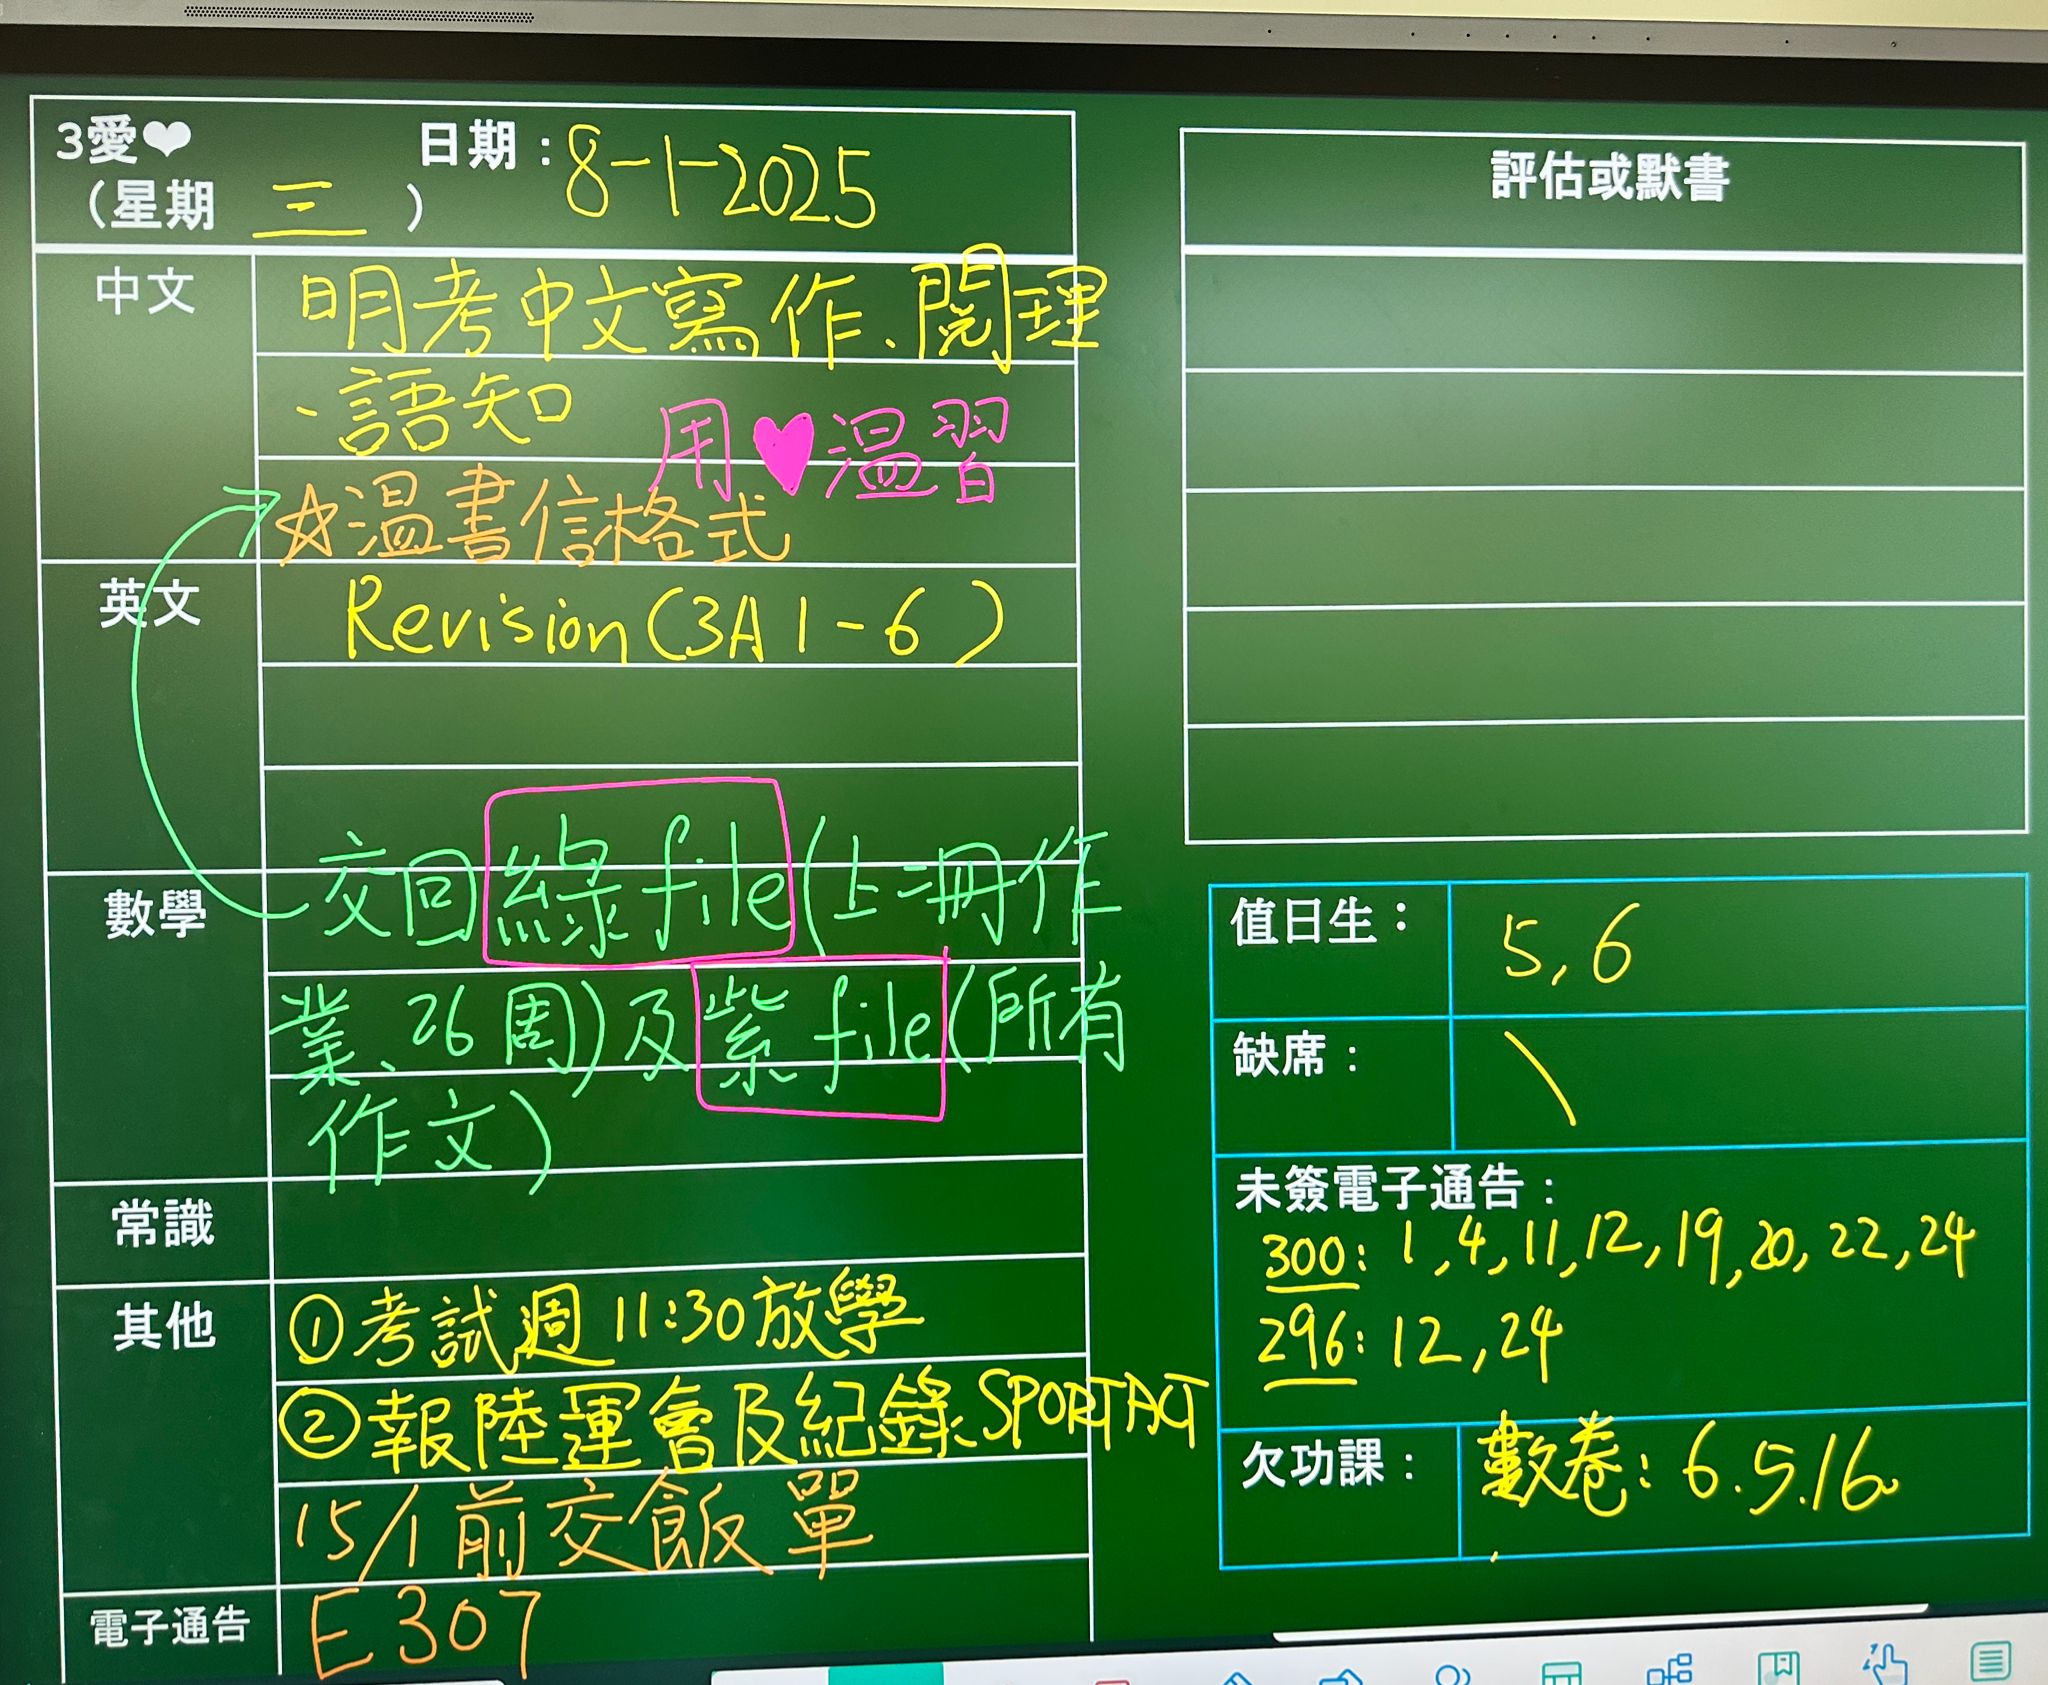 3愛❤ 日期：8-1-2025
（星期 三 ）
中文
明考中文寫作、閱理
、語知
用♥溫習
☆溫書信格式
英文
Revision (3A 1-6 )
數學
交回綠file(上冊作
業、26周)及紫file(所有
作文)
常識
其他
①考試週 11:30放學
②報陸運會及紀錄、SPORTACT
15/1前交飯單
電子通告
E307
評估或默書
值日生：
5, 6
缺席：
\
未簽電子通告：
300: 1, 4, 11, 12, 19, 20, 22, 24
296: 12, 24
欠功課：
數卷: 6.5.16.